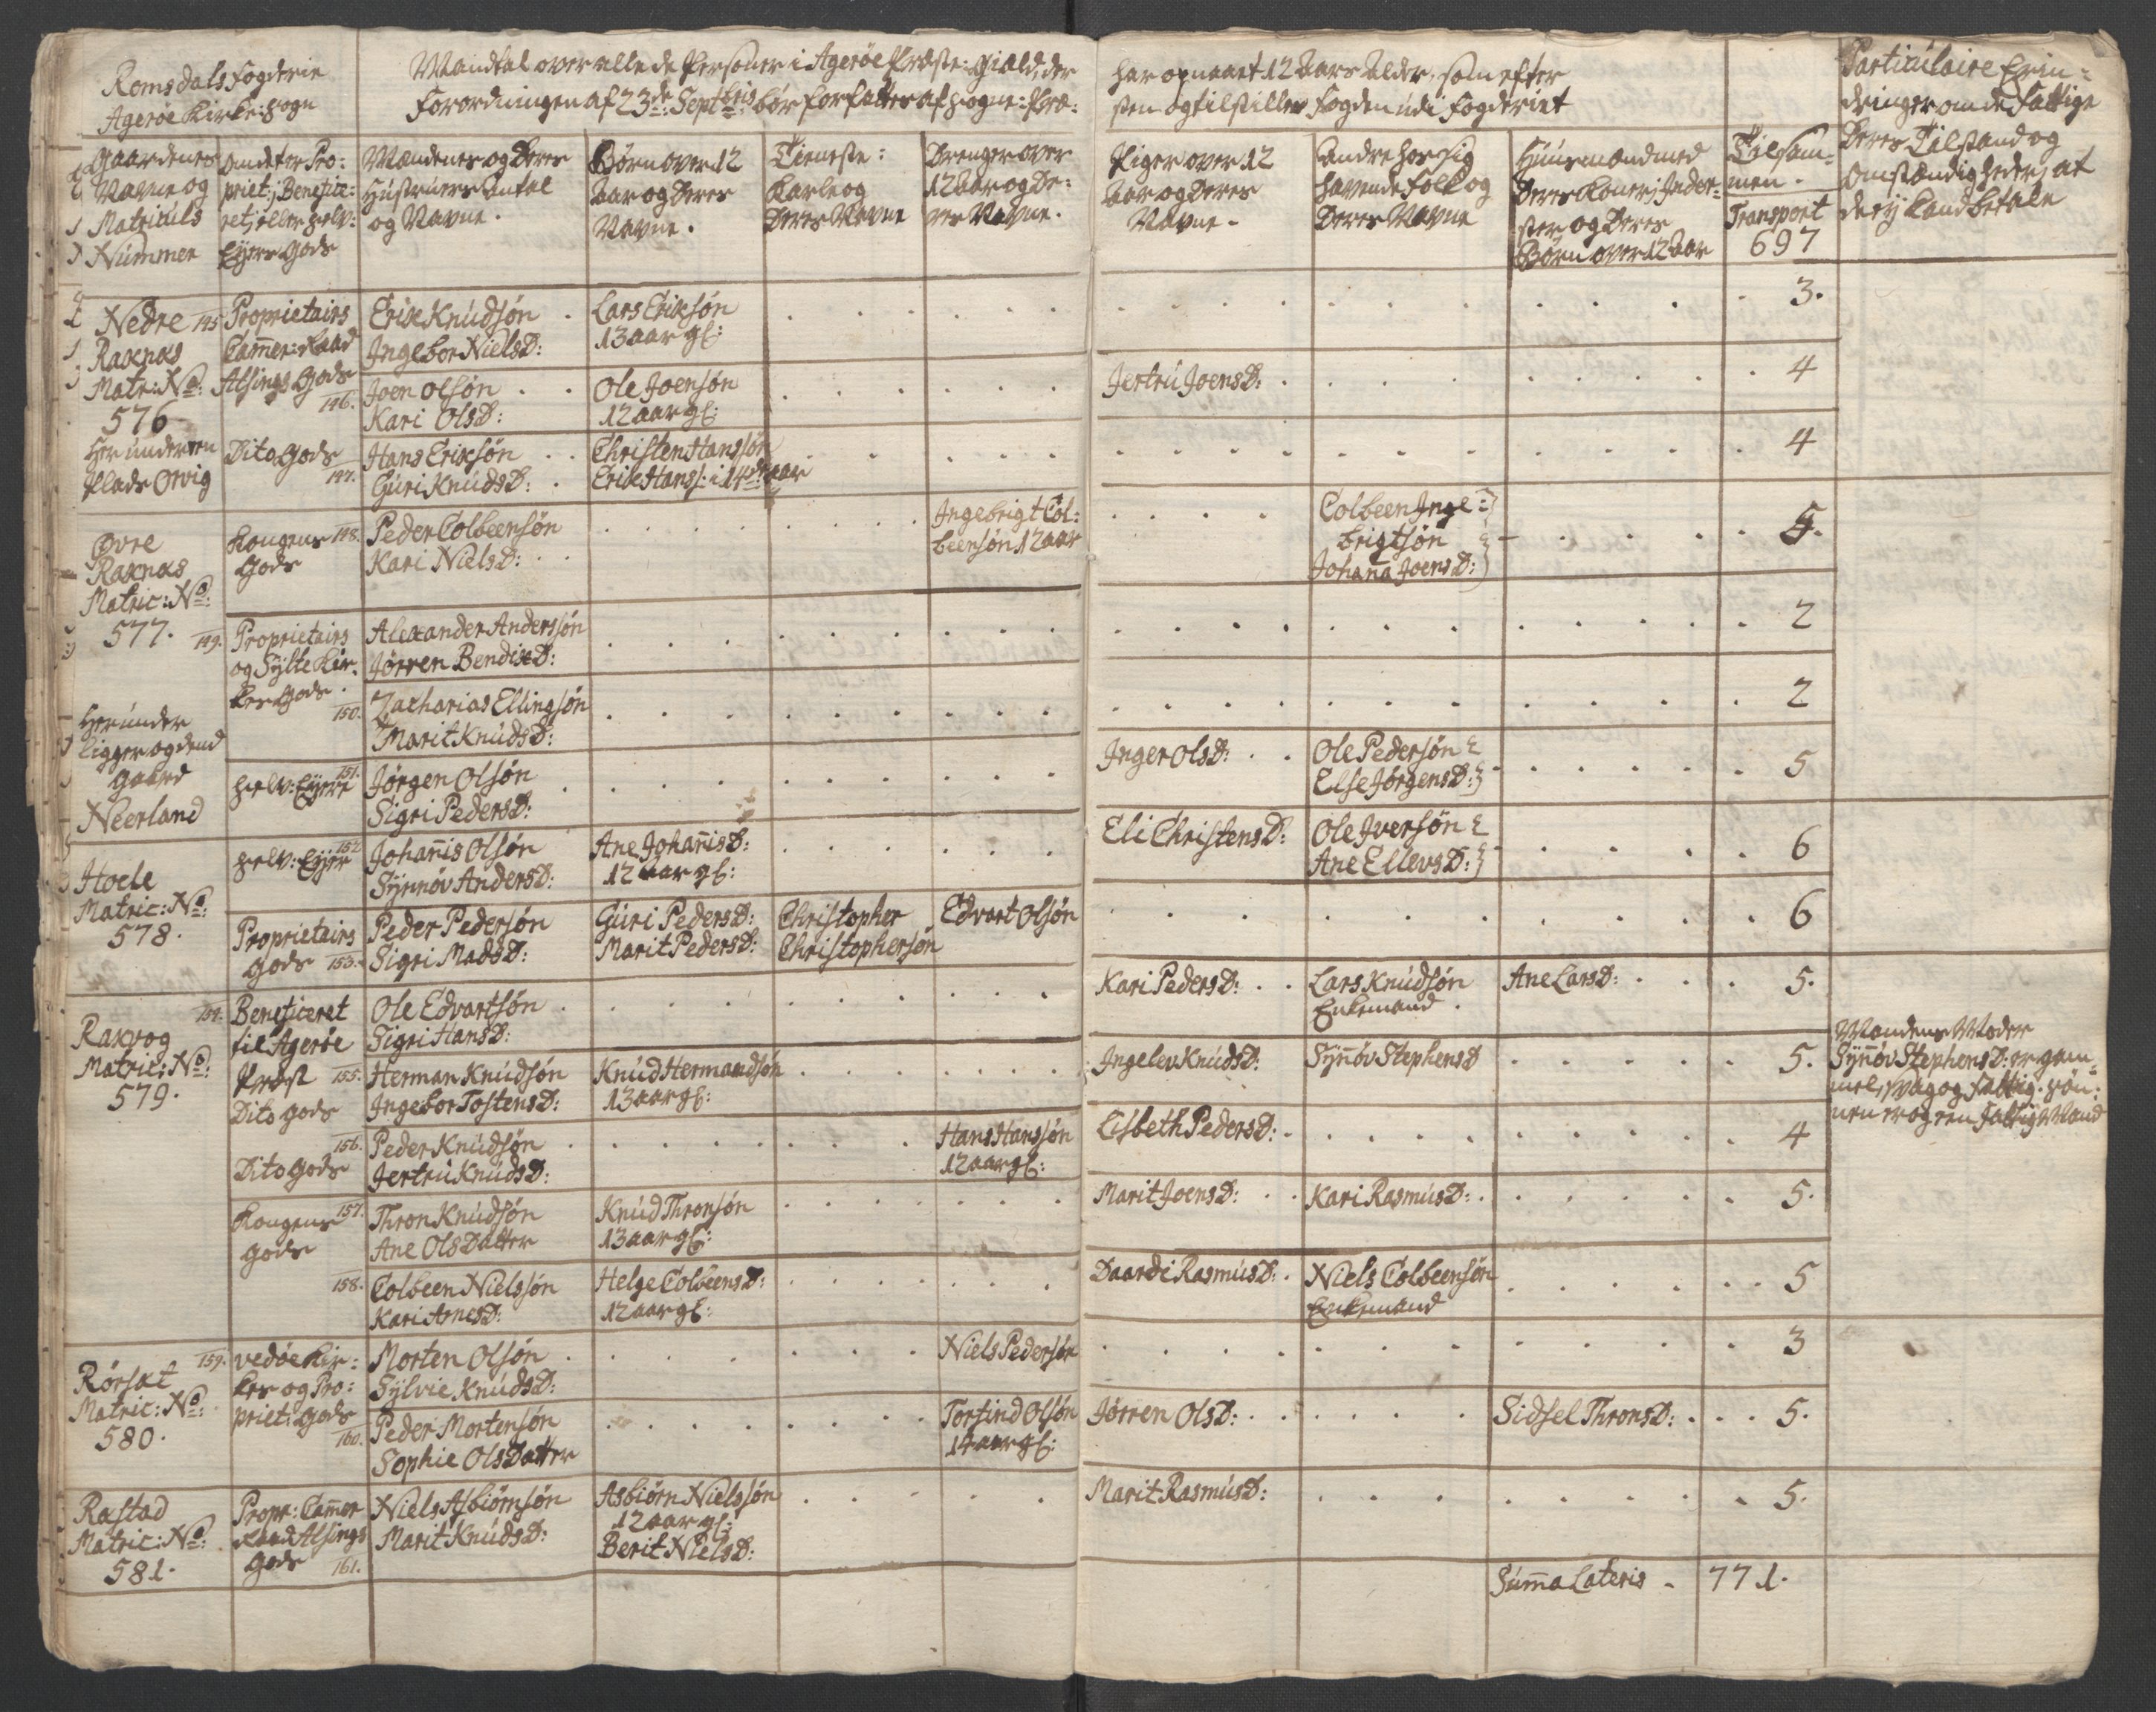 Romsdals Fogderie
Agerøe Kirke-Sogn
Mandtal over alle de Personer i Agerøe Præste-Giæld, der
Forordningen af 23de Septbris bør forfattes af Sogne-Præ-
har opnaaet 12 Aars Alder, som efter
sten og tilstilles Fogden udi Fogderiet
Particulaire Erin-
dringer om de Fattige
Deres Tilstand og
Omstændigheder, at
de ej kand betale
Gaardenes
Navne og
Matriculs
Nummer
Om de er Pro-
priet: Benefice-
ret, eller Selv-
Eyer Gods
Mændenes og Deres
Hustruers Antal
og Navne.
Børn over 12
Aar og Deres
Navne.
Tieneste-
Karle og
Deres Navne
Drenge over
12 Aar og De-
res Navne.
Piger over 12
Aar og Deres
Navne.
Andre hos sig
havende Folk og
Deres Navne
Huusmænd med
Deres Koner, Inder-
ster og Deres
Børn over 12 Aar
Tilsam-
men.
Transport
697
Nedre
Raknæs
Matr: No:
576
145 Proprietairs
Cammer-Raad
Alsings Gods
Erik Knudsøn
Ingebor NielsD:
Lars Eriksøn
13 aar gl:
3.
146.
Joen Olsøn
Kari OlsD:
Ole Joensøn
12 aar gl:
Jertru JoensD:
4
Her under en
Plads Orvig
Dito Gods
147.
Hans Eriksøn
Guri KnudsD:
Christen Hanssøn
Erik Hans: i 14de aar
4
Øvre
Raknæs
Matric: No:
577.
Kongens 148.
Gods
Peder Colbeensøn
Kari NielsD:
Ingebrigt Col-
beensøn 12 aar
Colbeen Inge-
brigtsøn
Johana JoensD:
5.
149. Proprietairs
og Sylte Kir-
kes Gods.
Alexander Anderssøn
Jørren BendixD:
2
150.
Zacharias Ellingsøn
Marit KnudsD:
2
Herunder
ligger og dend
Gaard
Neerland
Selv-Eyere 151.
Jørgen Olsøn
Sigri PedersD:
Inger OlsD:
Ole Pedersøn
Else JørgensD:
5
Hoele
Matric: No:
578.
Selv-Eyer 152
Johannis Olsøn
Synnøv AndersD:
Ane JohannisD:
12 aar gl:
Eli ChristensD:
Ole Iversøn
Ane EllevsD:
6
Proprietairs
Gods 153.
Peder Pedersøn
Sigri MadsD:
Guri PedersD:
Marit PedersD:
Christopher
Christophersøn
Edvart Olsøn
6
Rakvog
Matric: No:
579.
154. Beneficeret
til Agerøe
Præst
Ole Edvartsøn
Sigri HansD:
Kari PedersD:
Lars Knudsøn
Enkemand.
Ane LarsD:
5.
155.
Dito Gods
Herman Knudsøn
Ingebor TostensD:
Knud Hermandsøn
13 aar gl:
Ingelev KnudsD:
Synnøv StephensD
5.
Mandens Moder
Synnøv StephensD: er gam-
mel, svag og fattig. Søn-
nen er og en fattig Mand
156.
Dito Gods
Peder Knudsøn
Jertru KnudsD:
Hans Hanssøn
12 aar gl:
Lisbeth PedersD:
4
Kongens 157.
Gods
Thron Knudsøn
Ane OlsDatter
Knud Thronsøn
13 aar gl:
Marit JoensD:
Kari RasmusD:
5.
158.
Colbeen Nielssøn
Kari ArnesD:
Helge ColbeensD:
12 aar gl:
Daardi RasmusD:
Niels Colbeensøn
Enkemand
5
Rørsæt
Matric: No:
580.
159. Vedøe Kir-
kes og Pro-
priet: Gods
Morten Olsøn
Sylvie KnudsD:
Niels Pedersøn
3
160.
Peder Mortensøn
Sophie OlsDatter
Torfind Olsøn
14 aar gl:
Jørren OlsD:
Sidsel ThronsD:
5.
Rastad
Matric: No:
581.
Propr: Cammer
Raad Alsings
Gods 161.
Niels Asbiørnsøn
Marit KnudsD:
Asbiørn Nielssøn
12 aar gl:
Berit NielsD:
Marit RasmusD:
5.
Summa Lateris - 771.